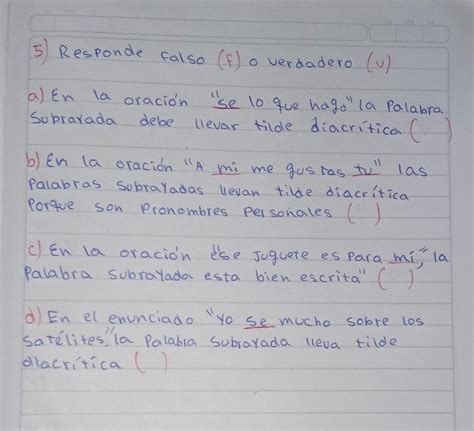 5) Responde falso (F) o verdadero (V)
a) En la oración "se lo que hago" la palabra
subrayada debe llevar tilde diacrítica ( )
b) En la oración "A mi me gustas tu" las
palabras subrayadas llevan tilde diacrítica
porque son pronombres personales ( )
c) En la oración ese juguete es para mí," la
palabra subrayada esta bien escrita" ( )
d) En el enunciado "Yo se mucho sobre los
satélites," la palabra subrayada lleva tilde
diacrítica ( )